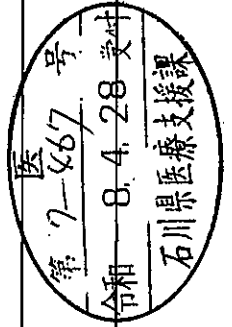 医
第 7-467 号
令和 8.4.28 受付
石川県医療支援課